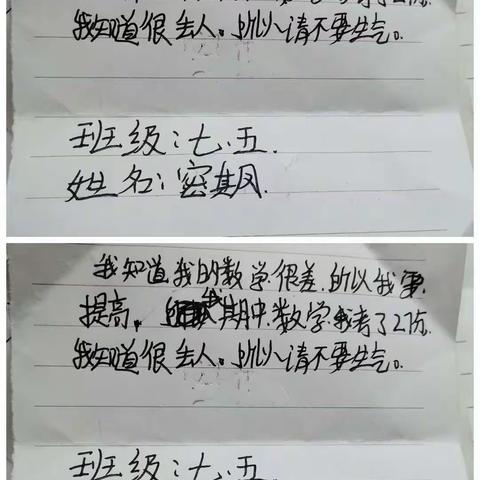 我知道很丢人。所以请不要生气。
班级：七.五.
姓名：密其凤.
我知道我的数学很差.所以我要
提高。我期中数学我考了2分.
我知道很丢人。所以请不要生气。
班级：七.五